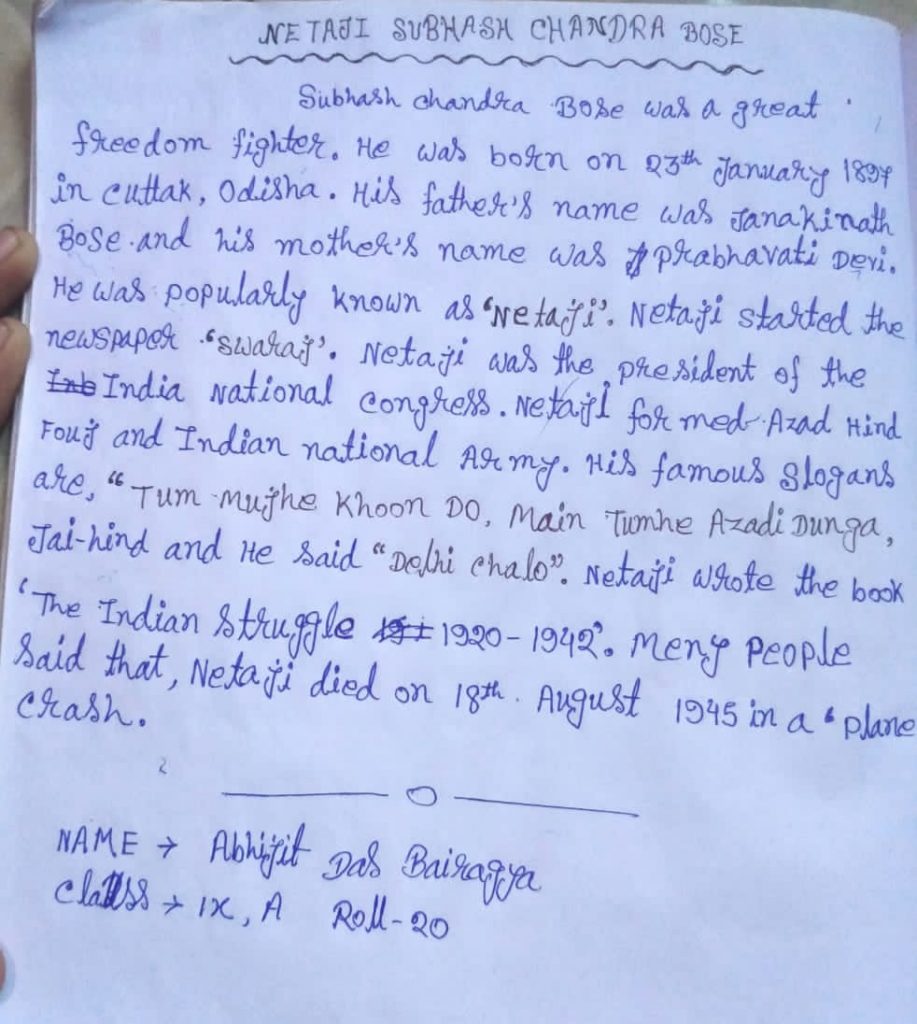 NETAJI SUBHASH CHANDRA BOSE
Subhash chandra Bose was a great
freedom fighter. He was born on 23th January 1897
in cuttak, Odisha. His father's name was Janakinath
Bose and his mother's name was prabhavati Devi.
He was popularly known as 'Netaji'. Netaji started the
newspaper 'swaraj'. Netaji was the president of the
India National congress. Netaji formed Azad Hind
Fouj and Indian national Army. His famous slogans
are, "Tum Mujhe Khoon DO, Main Tumhe Azadi Dunga,
Jai-hind and He said "Delhi chalo". Netaji wrote the book
'The Indian struggle 1920-1942'. Meny People
said that, Netaji died on 18th August 1945 in a 'plane
crash.
NAME → Abhijit Das Bairagya
Class → IX, A Roll-20